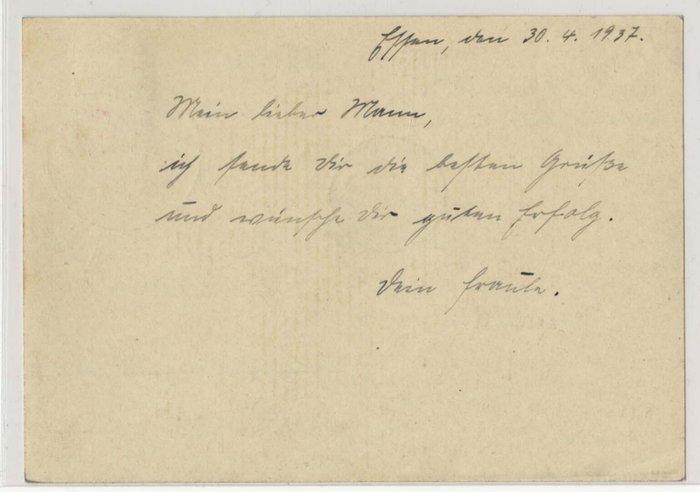 Essen, den 30.4.1937.
Mein lieber Mann,
ich sende Dir die besten Grüße
und wünsche Dir guten Erfolg.
Dein Fraule.